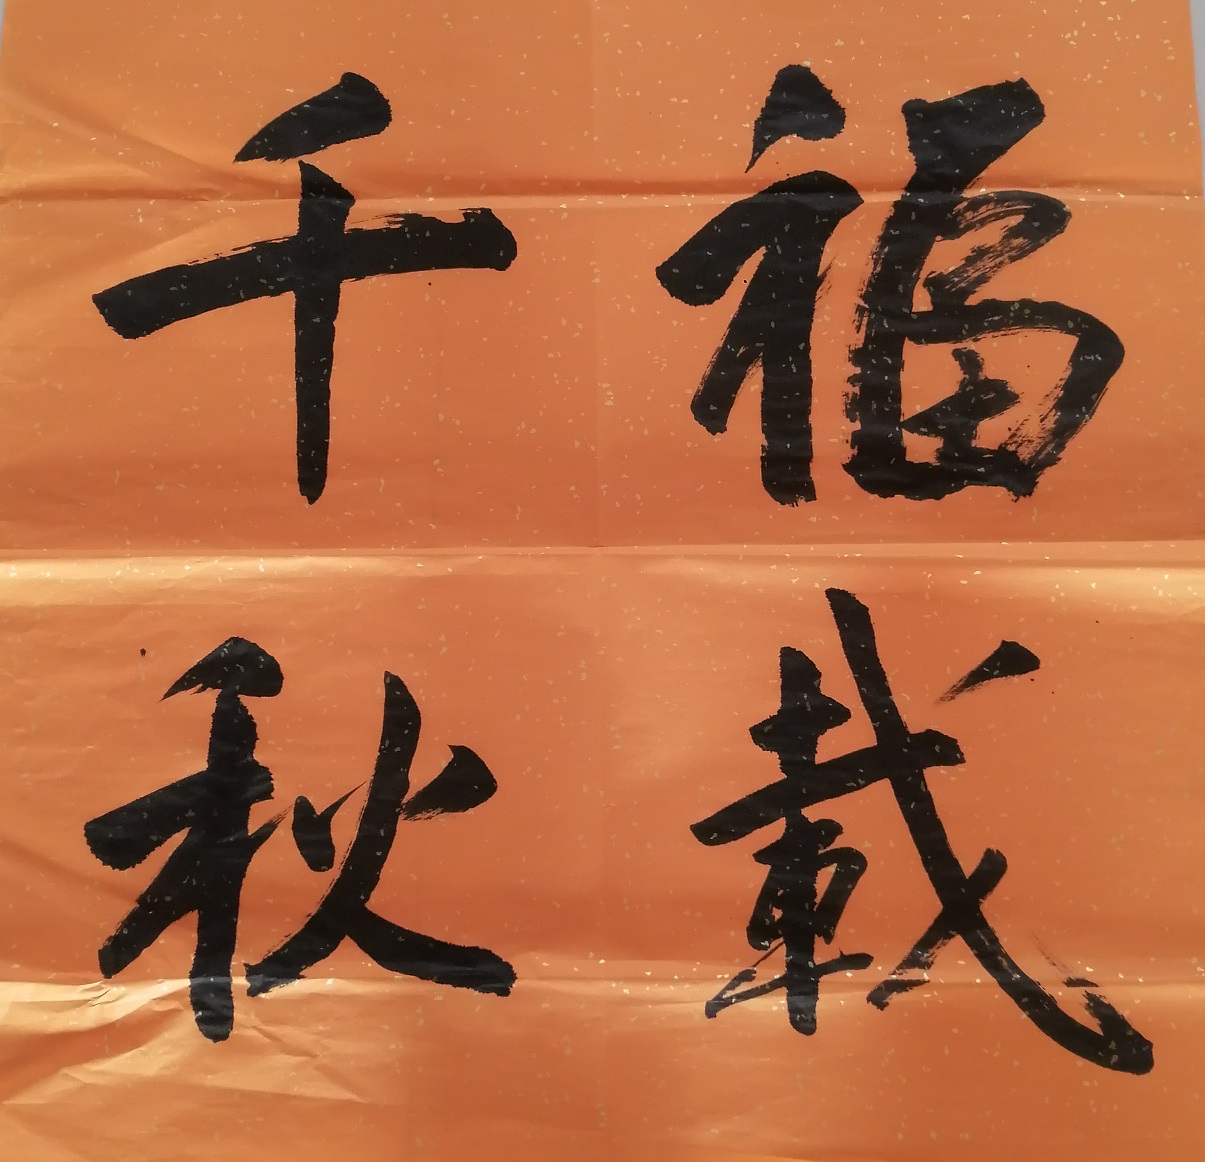 福載
千秋